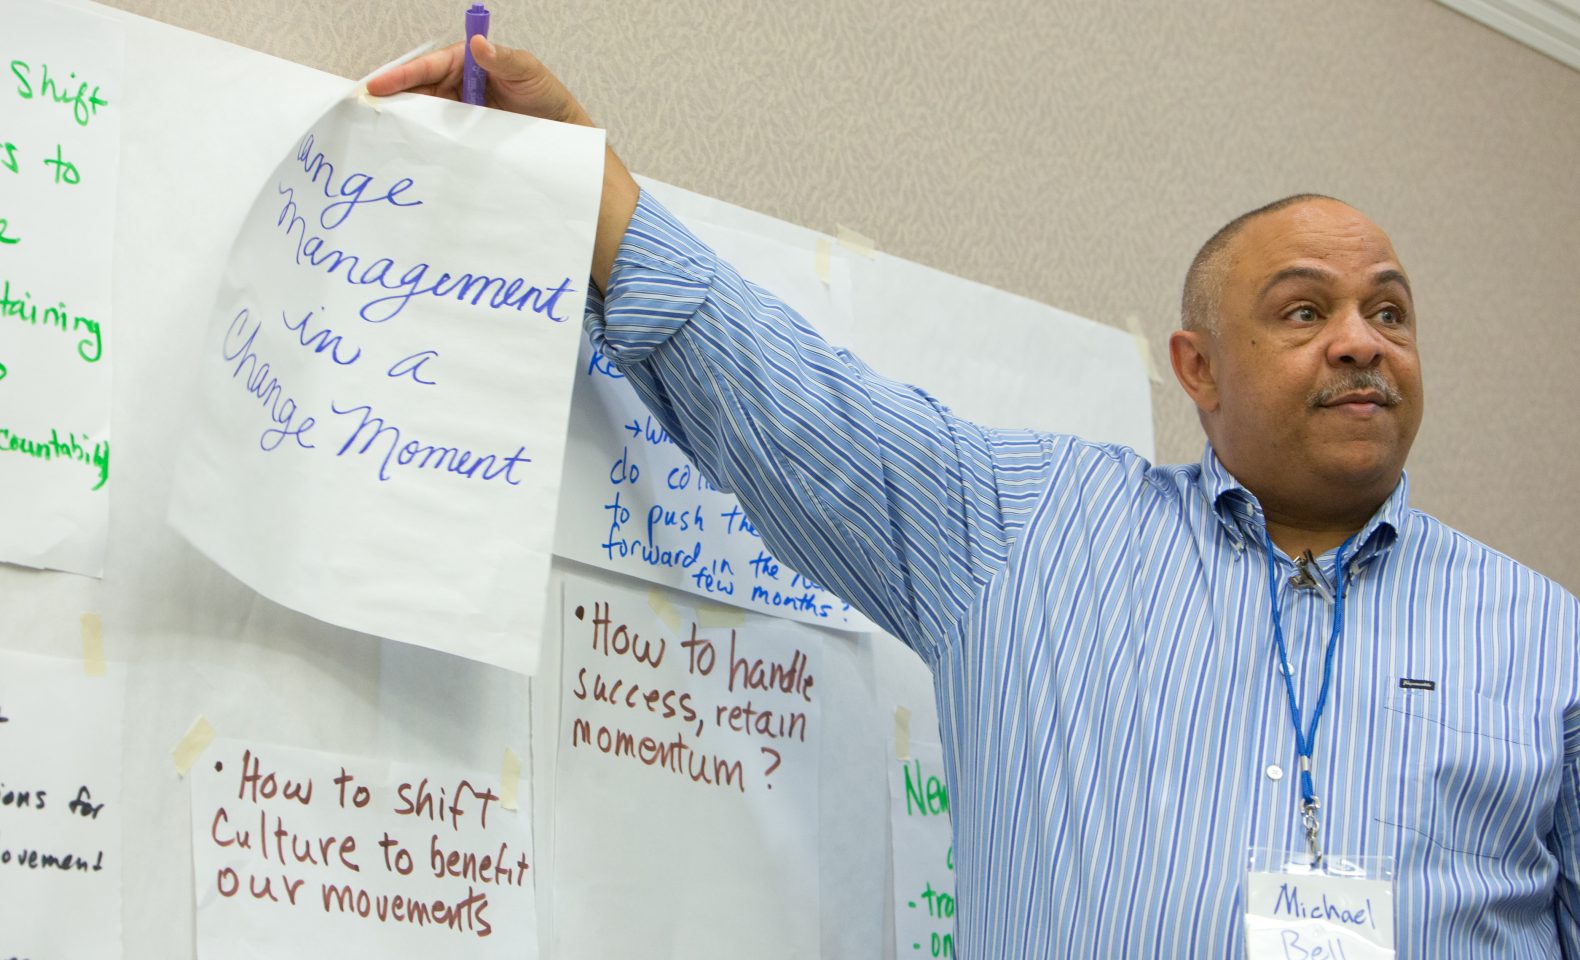 Shift
to
taining
countability
ange
Management
in a
Change Moment
do
to push the
forward in the
few months?
• How to handle
success, retain
momentum?
• How to shift
Culture to benefit
our movements
ons for
ovement
New
Michael
Bell